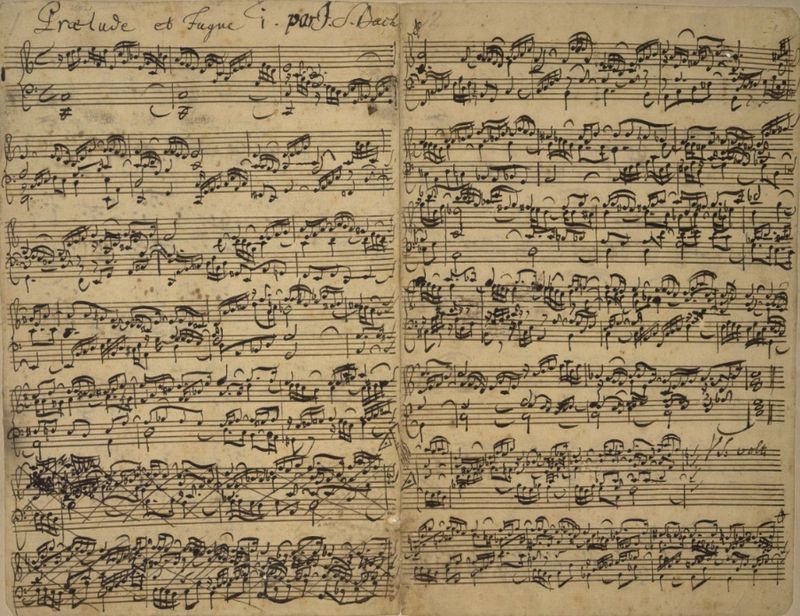 Prælude et Fugue 1. par J. S. Bach.
V. S. volti